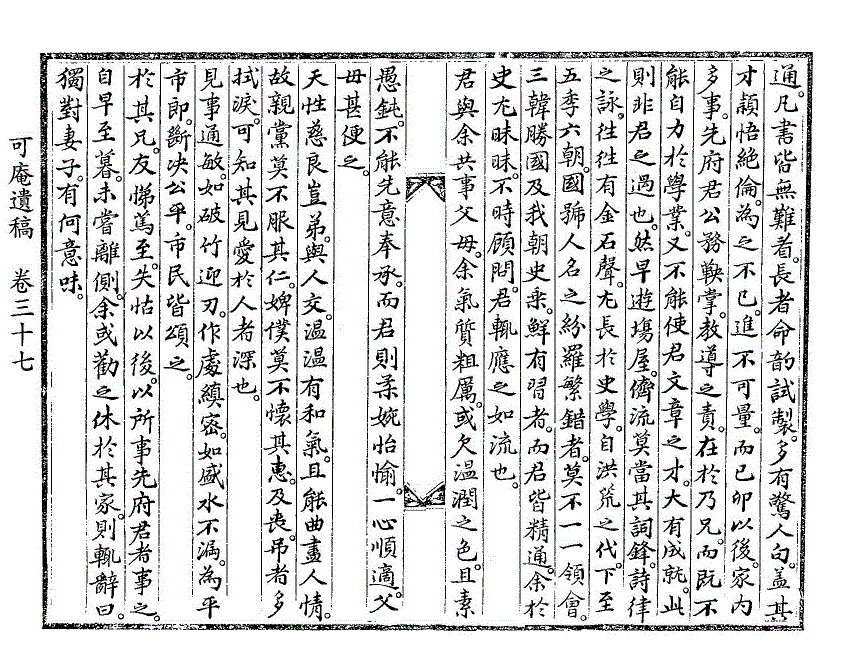 通。凡書皆無難者。長者命韵試製。多有驚人句。盖其
才穎悟絶倫。為之不已。進不可量。而己卯以後。家内
多事。先府君公務鞅掌。教導之責。在於乃兄。而既不
能自力於學業。又不能使君文章之才。大有成就。此
則非君之過也。然早遊塲屋。儕流莫當其詞鋒。詩律
之詠。往往有金石聲。尤長於史學。自洪荒之代。下至
五季六朝。國號人名之紛羅繁錯者。莫不一一領會。
三韓勝國及我朝史乘。鮮有習者。而君皆精通。余於
史尤昧昧。不時顧問。君輒應之如流也。
君與余共事父母。余氣質粗厲。或欠温潤之色。且素
愚鈍。不能先意奉承。而君則柔婉怡愉。一心順適。父
母甚便之。
天性慈良豈弟。與人交。温温有和氣。且能曲盡人情。
故親黨莫不服其仁。婢僕莫不懷其惠。及喪。吊者多
拭淚。可知其見愛於人者深也。
見事通敏。如破竹迎刃。作處縝密。如盛水不漏。為平
市郎。斷决公平。市民皆頌之。
於其兄。友悌篤至。失怙以後。以所事先府君者事之。
自早至暮。未嘗離側。余或勸之休於其家。則輒辭曰。
獨對妻子。有何意味。
可庵遺稿　卷三十七